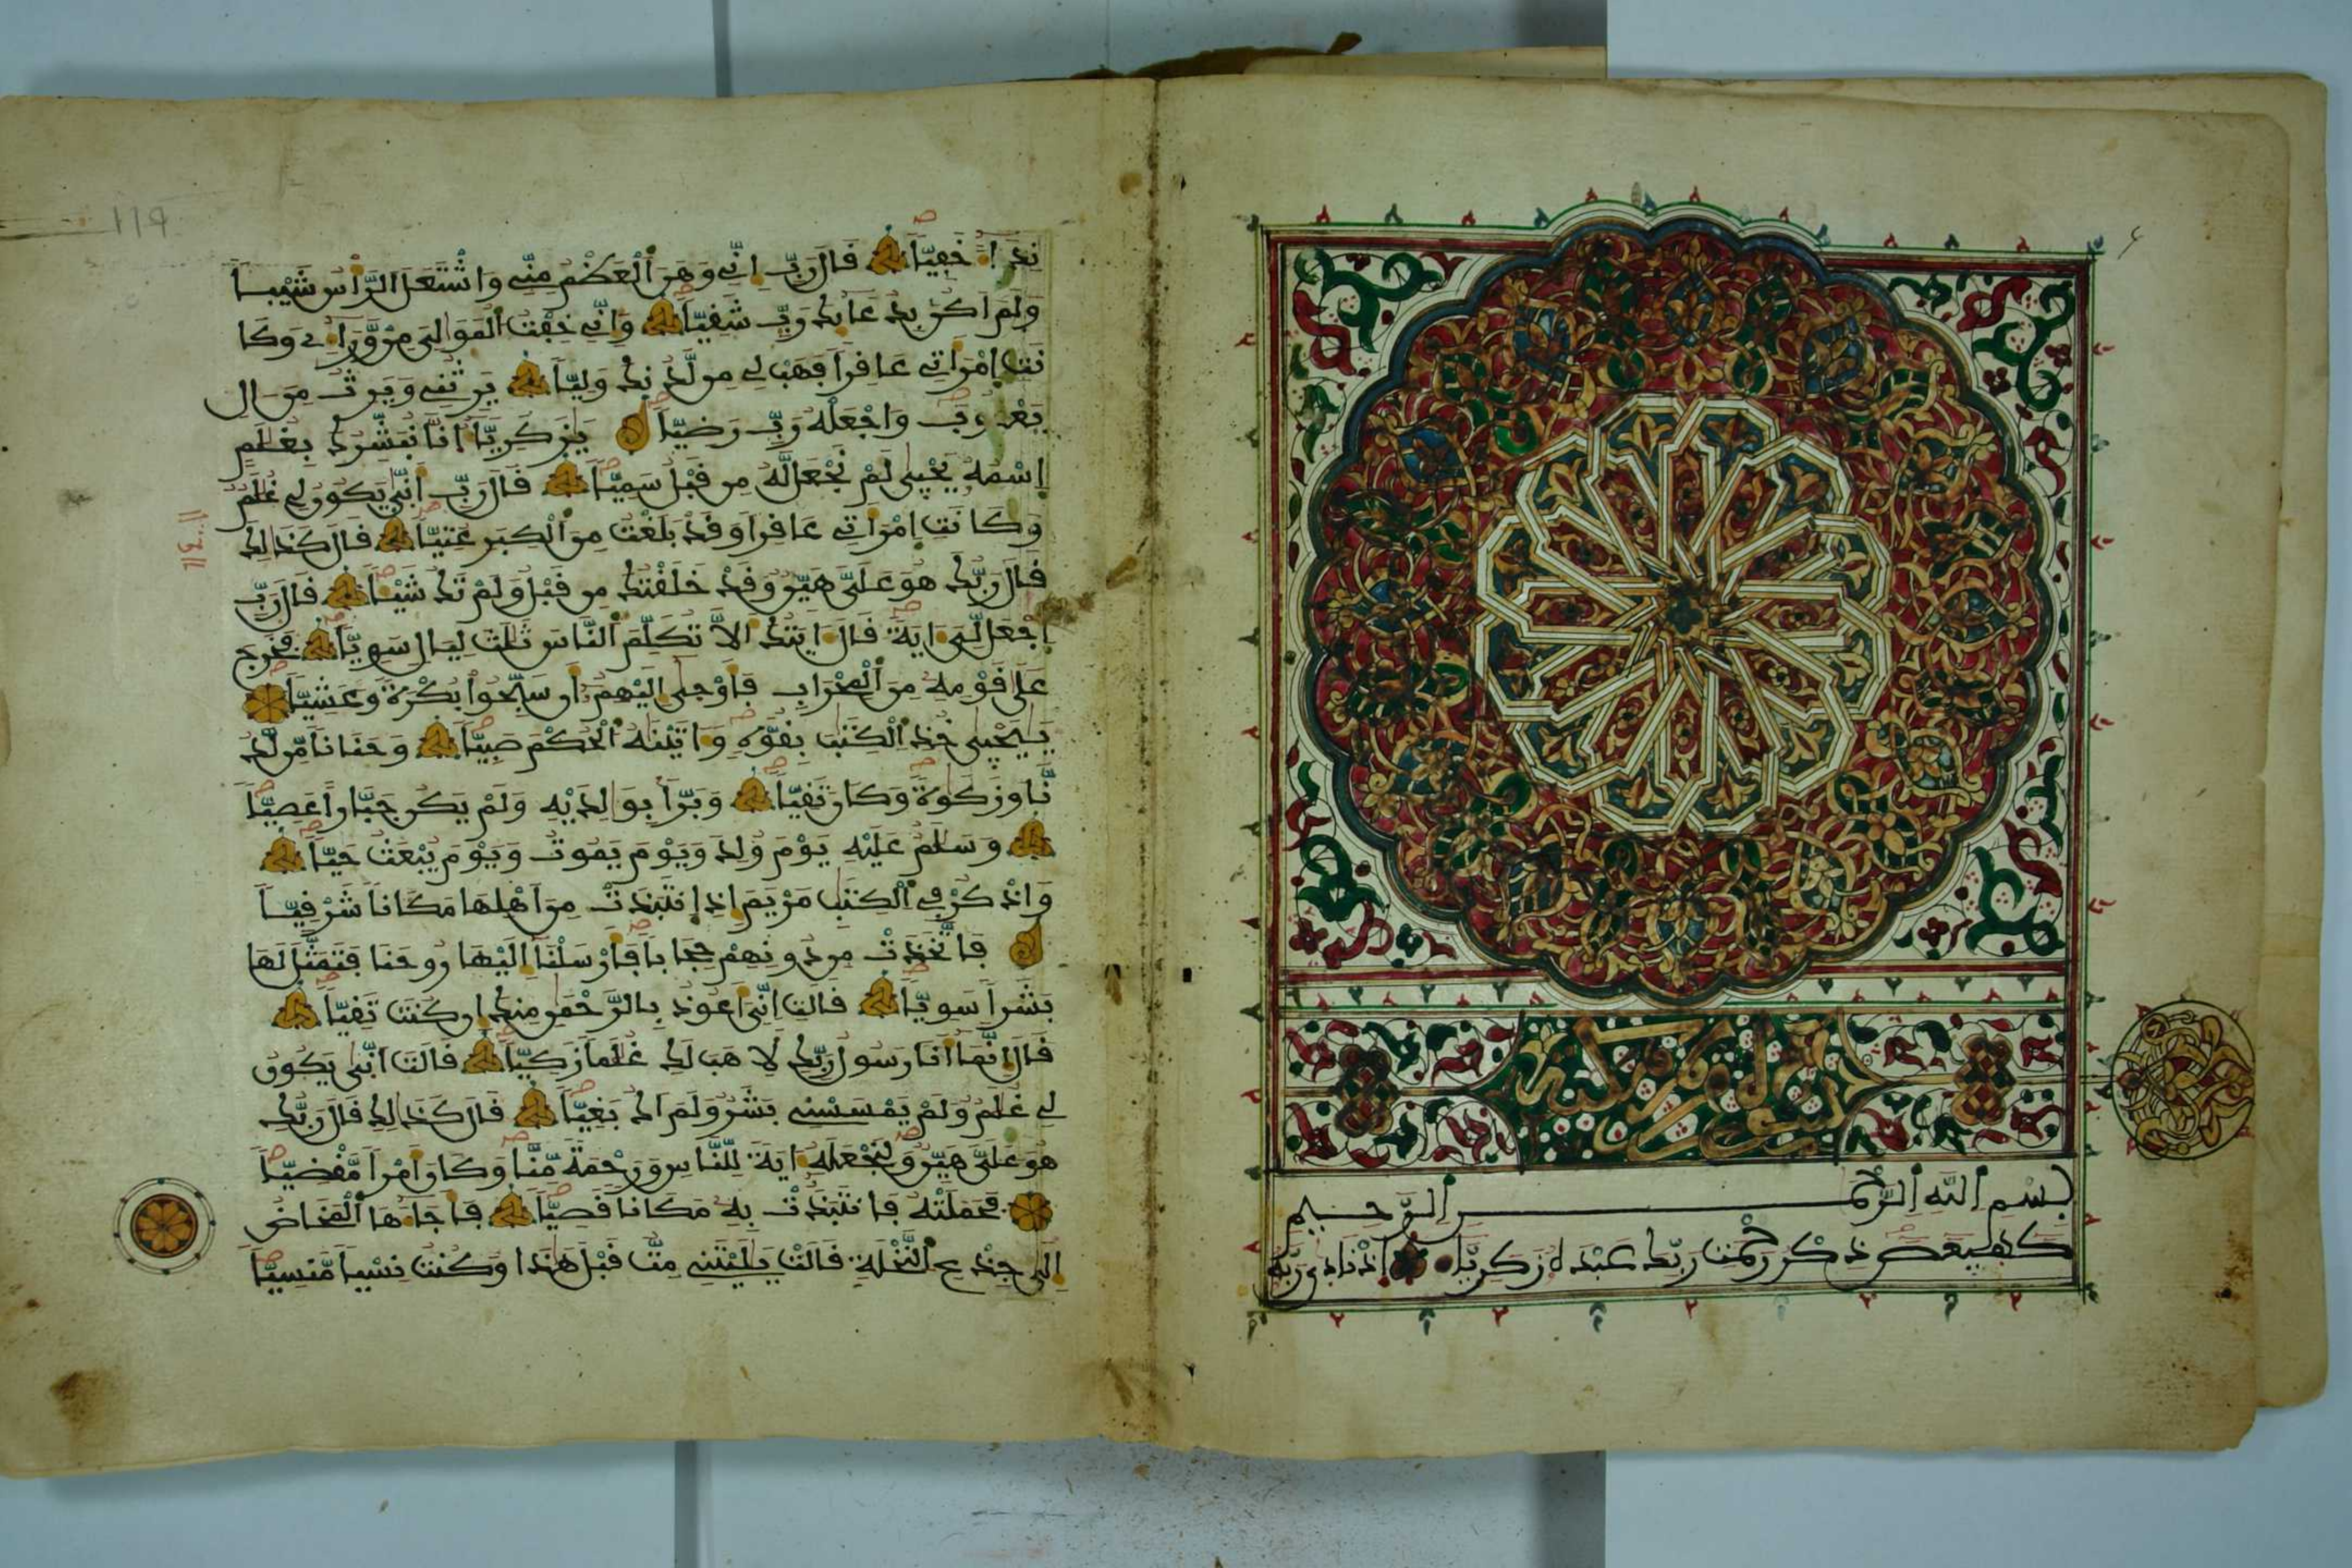 بسم الله الرحمن الرحيم
كهيعص ذكر رحمت ربك عبده زكرياء اذ نادى ربه
119
نداء خفيا قال رب اني وهن العظم مني واشتعل الراس شيبا
ولم اكن بدعائك رب شقيا واني خفت الموالي من وراءي وكا
نت امراتي عاقرا فهب لي من لدنك وليا يرثني ويرث من ال
يعقوب واجعله رب رضيا يزكرياء انا نبشرك بغلم
اسمه يحيى لم نجعل له من قبل سميا قال رب انى يكون لي غلم
وكانت امراتي عاقرا وقد بلغت من الكبر عتيا قال كذلك
قال ربك هو علي هين وقد خلقتك من قبل ولم تك شيئا قال رب
اجعل لي ءاية قال ءايتك الا تكلم الناس ثلث ليال سويا فخرج
على قومه من المحراب فاوحى اليهم ان سبحوا بكرة وعشيا
ييحيى خذ الكتب بقوة وءاتينه الحكم صبيا وحنانا من لد
نا وزكوة وكان تقيا وبرا بوالديه ولم يكن جبارا عصيا
وسلم عليه يوم ولد ويوم يموت ويوم يبعث حيا
واذكر في الكتب مريم اذ انتبذت من اهلها مكانا شرقيا
فاتخذت من دونهم حجابا فارسلنا اليها روحنا فتمثل لها
بشرا سويا قالت اني اعوذ بالرحمن منك ان كنت تقيا
قال انما انا رسول ربك لاهب لك غلما زكيا قالت انى يكون
لي غلم ولم يمسسني بشر ولم اك بغيا قال كذلك قال ربك
هو علي هين ولنجعله ءاية للناس ورحمة منا وكان امرا مقضيا
فحملته فانتبذت به مكانا قصيا فاجاءها المخاض
الى جذع النخلة قالت يليتني مت قبل هذا وكنت نسيا منسيا